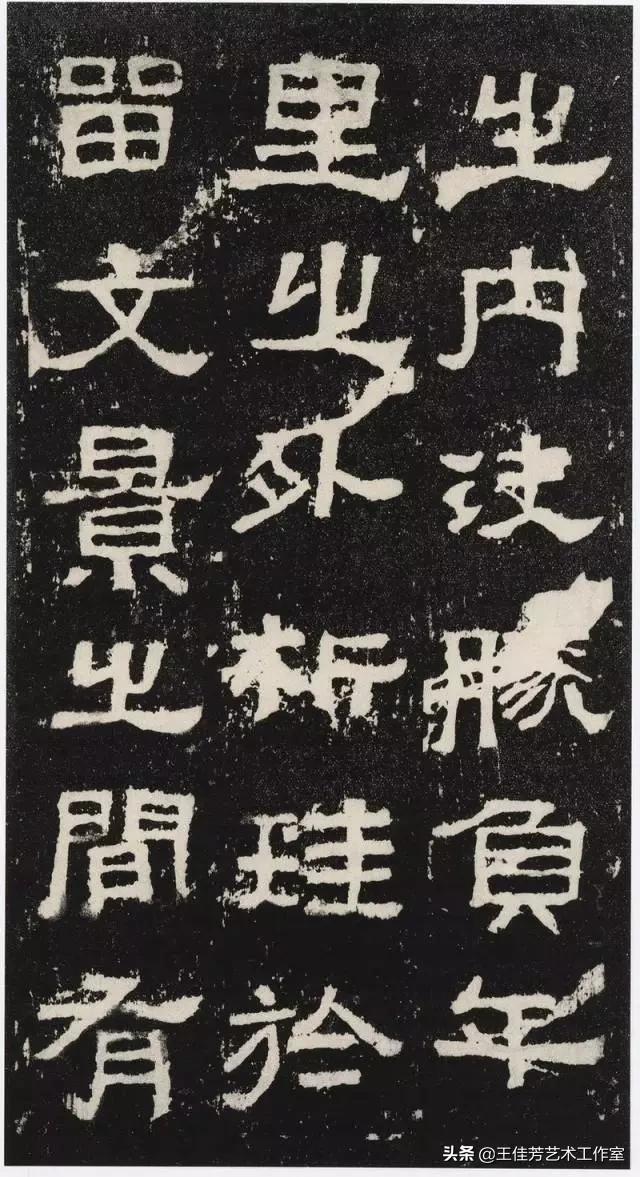 之內決勝負千
里之外析珪於
留文景之間有
头条 @王佳芳艺术工作室